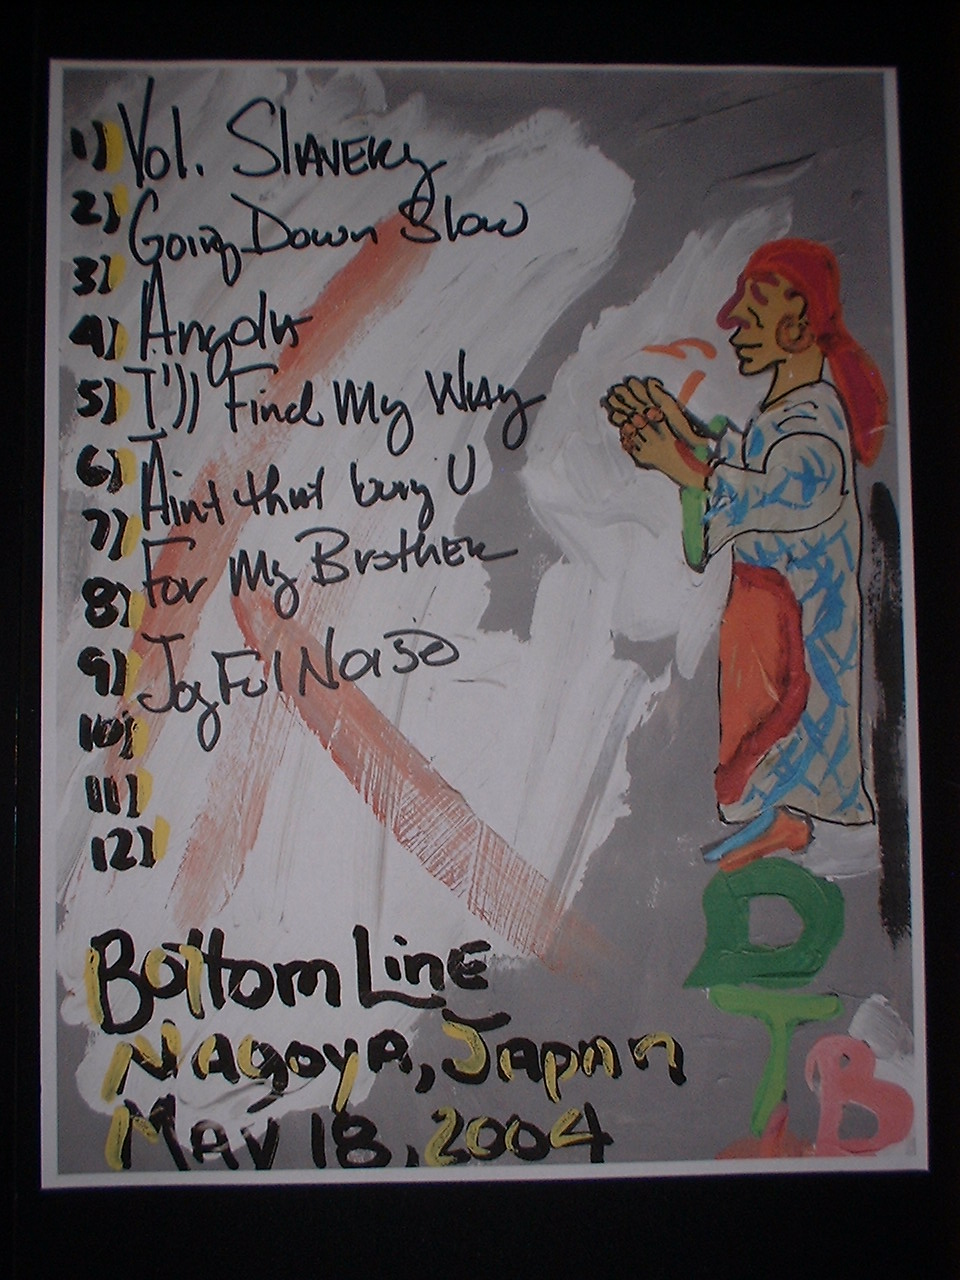 1) Vol. Slavery
2) Going Down Slow
3) Angola
4) I'll Find My Way
5) Aint that
6) For My Brother
7) Joyful Noise
8)
9)
10)
11)
12)
Bottom Line
Nagoya, Japan
May 18, 2004
DTB